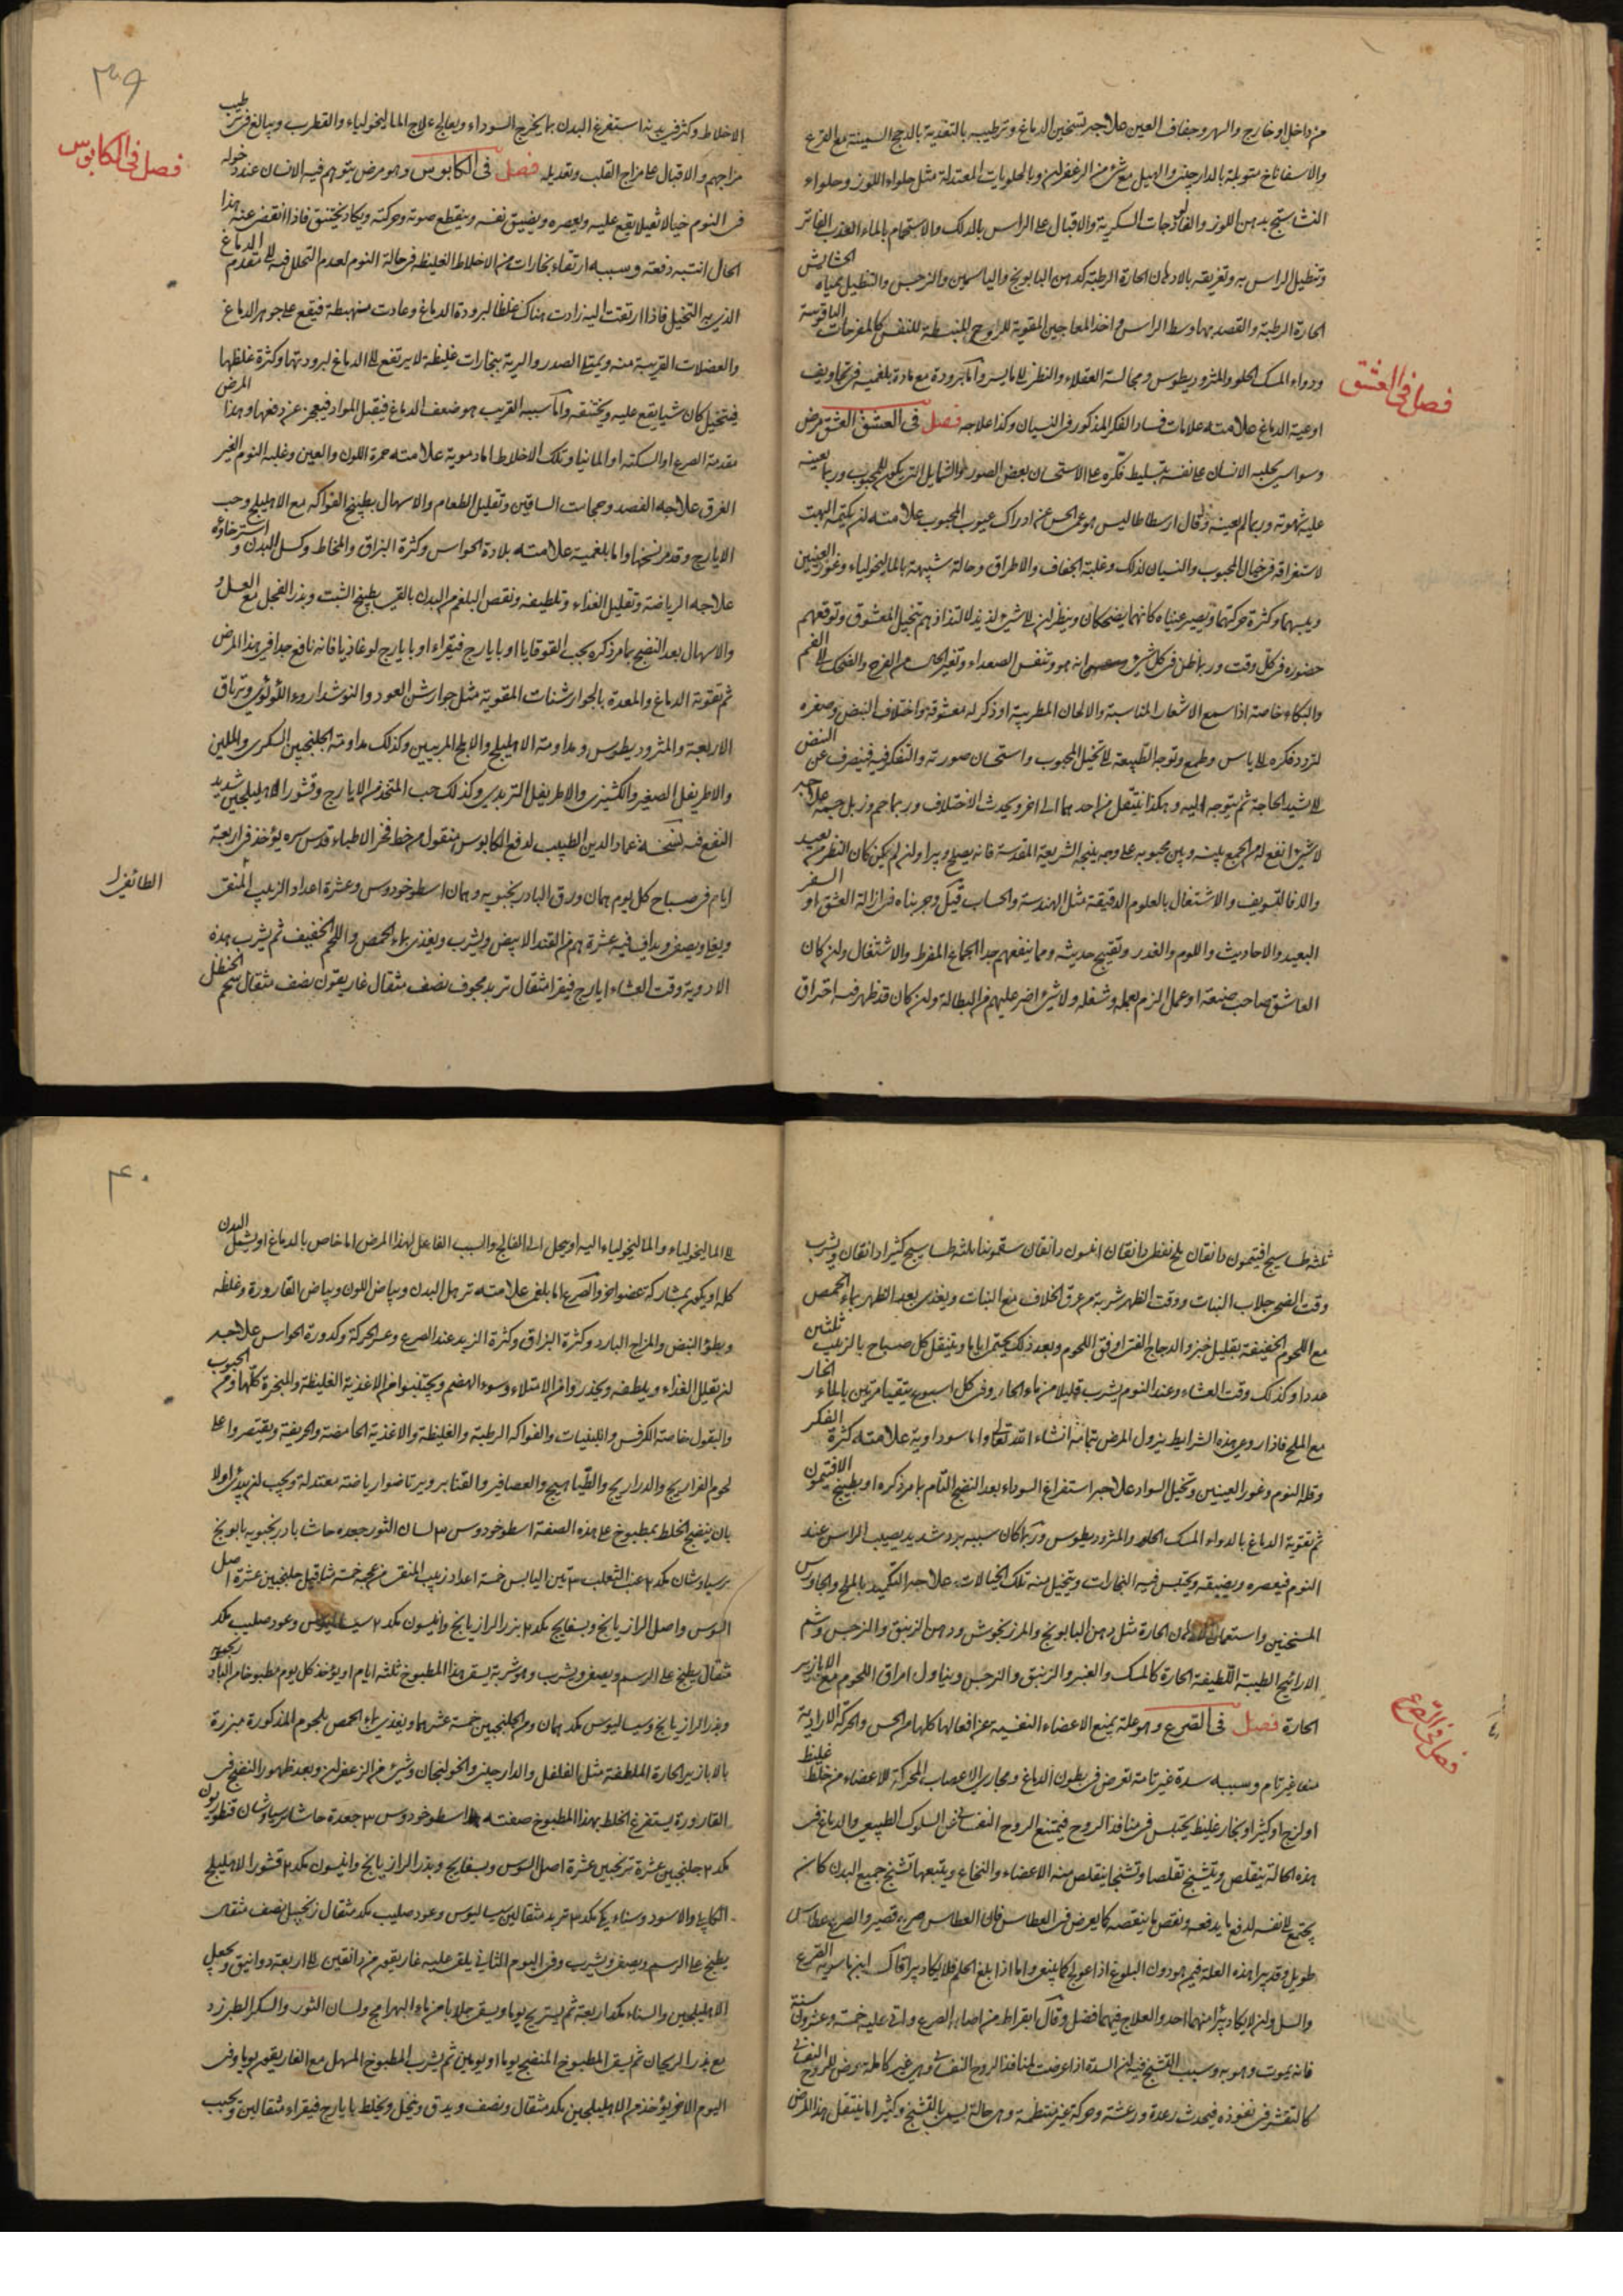 من داخل او خارج والسهر وجفاف العين علاجه تسخين الدماغ وترطيبه بالتغذية بالدجج السمينة مع القرع
والاسفاناخ متوبلة بالدارچيني والهيل مع شئ من الزعفران وبالحلويات المعتدلة مثل حلواء اللوز وحلواء
النشاستج بدهن اللوز والفالوذجات السكرية والاقبال على الراس بالدلك والاستحمام بالماء العذب الفاتر
وتنطيل الراس به وتعريقه بالادهان الحارة الرطبة كدهن البابونج والياسمين والنرجس والتنطيل بمياه الحشايش
الحارة الرطبة والقصد بها وسط الراس واخذ المعاجين المقوية للروح المنبسطة للنفس كالمفرحات الياقوتية
ودواء المسك الحلو والمثروديطوس ومجالسة العقلاء والنظر واما برودة مع مادة بلغمية في تجاويف
فصل فى العشق
اوعية الدماغ علامته علامات فساد الفكر المذكور فى النسيان وكذا علاجه فصل فى العشق العشق مرض
وسواسى يجلبه الانسان على نفسه بتسليط فكره على الاستحسان بعض الصور والشمايل التى يكون للمحبوب وربما يعينه
عليه شهوته وربما لم يعينه وقال ارسطاطاليس هو عمى الحس عن ادراك عيوب المحبوب علامته ان يكثر البهت
لاستغراقه فى خيال المحبوب والنسيان لذلك وغلبة الجفاف والاطراق وحالة شبيهة بالماليخولياء وغور العينين
ويبسهما وكثرة حركتهما ويصير عيناه كانهما يضحكان وينظران الى شئ لذيذ لالتذاذهم بتخيل المعشوق وتوقعهم
حضوره فى كل وقت وربما ظن فى كل شئ انه هو وتنفس الصعداء وتغير الحال من الفرح والضحك الى الغم
والبكاء خاصة اذا سمع الاشعار المناسبة والالحان المطربة او ذكر له معشوقه واختلاف النبض وصغره
لتردد فكره الى ياس وطمع وتوجه الطبيعة الى تخيل المحبوب واستحسان صورته والتفكر فيه فينصرف عن النبض
الى اشد الحاجة ثم يتوجه اليه وهكذا ينتقل من احدهما الى اخر ويحدث الاختلاف وربما حم وذبل جسمه علاجه
لا شئ انفع له من الجمع بينه وبين محبوبه على وجه ينتجه الشريعة المقدسة فانه يصلح ويبرا وان لم يكن كان النظر من بعيد
والا فالتسويف والاشتغال بالعلوم الدقيقة مثل الهندسة والحساب قيل وجربناه فى ازالة العشق او السفر
البعيد والاحاديث واللوم والغدر وتقبيح حديثه ومما ينفعهم جدا الجماع المفرط والاشتغال وان كان
العاشق صاحب صنعة او عمل الزم بعمله وشغله ولا شئ اضر عليهم من البطالة وان كان قد ظهر فيه احتراق
٣٩
الاخلاط وكثر فى بدنه استفرغ البدن بما يخرج السوداء ويعالج علاج الماليخولياء والقطرب ويبالغ فى ترطيب
فصل فى الكابوس
مزاجهم والاقبال على مزاج القلب وتعديله فصل فى الكابوس وهو مرض يتوهم فيه الانسان عند دخوله
فى النوم خيالا ثقيلا يقع عليه ويعصره ويضيق نفسه وينقطع صوته وحركته ويكاد يختنق فاذا انقضى عنه هذا
الحال انتبه دفعة وسببه ارتفاء بخارات من الاخلاط الغليظة فى حالة النوم لعدم التحلل فيه الى مقدم الدماغ
الذى به التخيل فاذا ارتقت اليه زادت هناك غلظا لبرودة الدماغ وعادت منهبطة فيقع على جوهر الدماغ
والعضلات القريبة منه ويمتلى الصدر والرية ببخارات غليظة لا يرتفع الى الدماغ لبرودتها وكثرة غلظها
فيتخيل كان شيا يقع عليه ويختنقه واما سببه القريب هو ضعف الدماغ فيقبل المواد فيعجز عن دفعها وهذا المرض
مقدمة الصرع او السكتة او المانيا وتلك الاخلاط اما دموية علامته حمرة اللون والعين وغلبة النوم الغير
الغرق علاجه الفصد وحجامت الساقين وتقليل الطعام والاسهال بطبيخ الفواكه مع الاهليلج وحب
الايارج وقد مر نسخها واما بلغمية علامته بلادة الحواس وكثرة البزاق والمخاط وكسل البدن واسترخاؤه
علاجه الرياضة وتقليل الغذاء وتلطيفه ونقص البلغم من البدن بالقى بطبيخ الشبت وبذر الفجل مع العسل و
والاسهال بعد النضج بما مر ذكره بحب القوقايا او بايارج فيقراء او بايارج لوغاذيا فانه نافع جدا فى هذا المرض
ثم تقوية الدماغ والمعدة بالجوارشنات المقوية مثل جوارشن العود والنوشدارو اللؤلؤى وترياق
الاربعة والمثروديطوس ومداومة الاهليلج والاملج المربيين وكذلك مداومة الجلنجبين السكرى والملين
والاطريفل الصغير والكشنيزى والاطريفل التربدى وكذلك حب المتخذ من الايارج وقشور الاهليلجين شديد
النفع فيه نسخة عماد الدين الطبيب لدفع الكابوس منقول من خط فخر الاطباء قدس سره يؤخذ فى اربعة
ايام فى صباح كل يوم همان ورق البادرنجبويه وهمان اسطوخودوس وعشرة اعداد الزبيب المنقى الطائفى
ويغلى ويصفى ويداف فيه عشرة من القند الابيض ويشرب ويغذى بماء الحمص واللحم الخفيف ثم يشرب هذه
الادوية وقت العشاء ايارج فيقرا مثقال تربد مجوف نصف مثقال غاريقون نصف مثقال شحم الحنظل
ثلثه طساسيج افتيمون دانقان ملح نفطى دانقان انيسون دانقان سقمونيا ثلثه طساسيج كثيرا دانقان ويشرب
وقت الضحى جلاب النبات ووقت الظهر شربة من عرق الخلاف مع النبات ويغذى بعد الظهر بماء الحمص
مع اللحوم الخفيفة بقليل خبز والدجاج الفتى اوفق اللحوم وبعد ذلك يحتمى اياما ويتنقل كل صباح بالزبيب ثلثين
عددا وكذلك وقت العشاء وعند النوم يشرب قليلا من ماء الحار وفى كل اسبوع يتقيا مرتين بالماء الحار
مع الملح فاذا روعى هذه الشرايط يزول المرض بتمامه انشاء الله تعالى واما سوداوية علامته كثرة الفكر
وقلة النوم وغور العينين وتخيل السواد علاجه استفراغ السوداء بعد النضج التام بما مر ذكره او بطبيخ الافتيمون
ثم تقوية الدماغ بالدواء المسك الحلو والمثروديطوس وربما كان سببه برد شديد يصيب الراس عند
النوم فيعصره ويضيقه ويحتبس فيه البخارات ويتخيل منه تلك الخيالات علاجه التكميد بالملح والجاورس
المسخنين واستعمال الادهان الحارة مثل دهن البابونج والمرزنجوش ودهن الزنبق والنرجس وشم
الارائيح الطيبة اللطيفة الحارة كالمسك والعنبر والزنبق والنرجس ويناول امراق اللحوم مع الابازير
فصل فى الصرع
الحارة فصل فى الصرع وهو علة يمنع الاعضاء النفسية عن افعالها كلها من الحس والحركة الارادية
منعا غير تام وسببه سدة غير تامة تعرض فى بطون الدماغ ومجارى الاعصاب المحركة للاعضاء من خلط غليظ
او لزج او كثير او بخار غليظ يحتبس فى منافذ الروح فيمتنع الروح النفسانى السلوك الطبيعى والدماغ فى
هذه الحالة يتقلص ويتشنج تقلصا وتشنجا يتقلص منه الاعضاء والنخاع ويتبعها تشنج جميع البدن كانه
يجتمع الى نفسه لدفع ما يدفعه ونفض ما ينفضه كما يعرض فى العطاس فان العطاس صرع قصير والصرع عطاس
طويل وقد يبرا هذه العلة فيمن هو دون البلوغ اذا عولج كما ينبغى واما اذا بلغ الحلم فلا يكاد يبرا قال ابن ماسويه الصرع
والسل وان لا يكاد يبرا منهما احد والعلاج فيهما فضل وقال بقراط من اصابه الصرع واتى عليه خمسة وعشرون سنة
فانه يموت وهو به وسبب التشنج فيه ان السدة اذا عرضت لمنافذ الروح النفسانى وهى غير كاملة عرض للروح النفسانى
كالتقشر فى نفوذه فيحدث رعدة ورعشة وحركة غير منتظمة وهى حالة يسمى بالتشنج وكثيرا ما ينتقل هذا المرض
٤٠
الى الماليخولياء والماليخولياء اليه او يحل الى الفالج والسبب الفاعل لهذا المرض اما خاص بالدماغ او يشمل البدن
كله او يكون بمشاركة عضو اخر والصرع اما بلغمى علامته ترهل البدن وبياض اللون وبياض القارورة وغلظه
وبطؤ النبض والمزاج البارد وكثرة البزاق وكثرة الزبد عند الصرع وعسر الحركة وكدورة الحواس علاجه
ان تقليل الغذاء ويلطفه ويحذروا من الامتلاء وسوء الهضم ويجتنبوا من الاغذية الغليظة والمبخرة كلها ومن الحبوب
والبقول خاصة الكرفس واللبنيات والفواكه الرطبة والغليظة والاغذية الحامضة والحريفة ويقتصروا على
لحوم الفراريج والدراريج والطياهيج والعصافير والقنابر ويرتاضوا رياضة معتدلة ويجب ان يبدئ اولا
بان ينضج الخلط بمطبوخ على هذه الصفة اسطوخودوس ٣ لسان الثور جعده حاشا بادرنجبويه بابونج
پرسياوشان مكد ٢ عنب الثعلب ٣ تين اليابس خمسة اعداد زبيب المنقى من عجمه خمسة مثاقيل جلنجبين عشرة اصل
السوس واصل الرازيانج وبسفايج مكد ٢ بزر الرازيانج وانيسون مكد ٢ سيساليوس وعود صليب مكد
مثقال يطبخ على الرسم ويصفى ويشرب وهو شربة يسقى هذا المطبوخ ثلثه ايام او يؤخذ كل يوم مطبوخا من البادرنجبويه
وبذر الرازيانج وسيساليوس مكد همان ومن الجلنجبين خمسة عشر هما ويغذى بماء الحمص بلحوم المذكورة مبزرة
بالابازير الحارة الملطفة مثل الفلفل والدارچيني والخولنجان وشئ من الزعفران وبعد ظهور النضج فى
القارورة يستفرغ الخلط بهذا المطبوخ صفته اسطوخودوس ٣ جعدة حاشا پرسياوشان قنطوريون
مكد ٢ جلنجبين عشرة ترنجبين عشرة اصل السوس وبسفايج وبذر الرازيانج وانيسون مكد ٢ قشور الاهليلج
الكابلى والاسود وسناء مكى مكد ٣ تربد مثقالين سيساليوس وعود صليب مكد مثقال زنجبيل نصف مثقال
يطبخ على الرسم ويصفى ويشرب وفى اليوم الثانى يلقى عليه غاريقون من دانقين الى اربعة دوانيق ويجعل
الاهليلجين والسناء مكد اربعة ثم يستريح يوما ويسقى جلابا من ماء البهرامج ولسان الثور والسكر الطبرزد
مع بذر الريحان ثم يسقى المطبوخ المنضج يوما او يومين ثم يشرب المطبوخ المسهل مع الغاريقون يوما وفى
اليوم الاخر يؤخذ من الاهليلجين مكد مثقال ونصف ويدق وينخل ويخلط بايارج فيقراء مثقالين ويحبب